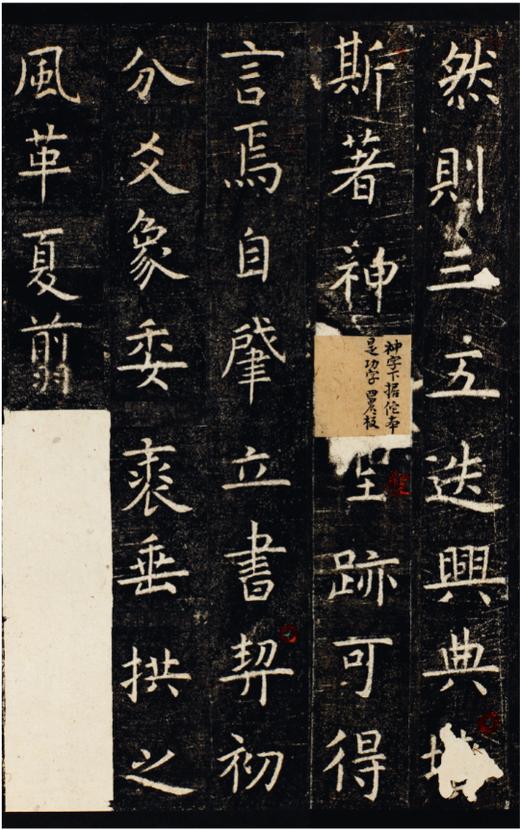 然則三五迭興典
斯著神聖跡可得
神字下据佗本
是功字校
言焉自肇立書契初
分爻象委裘垂拱之
風革夏翦